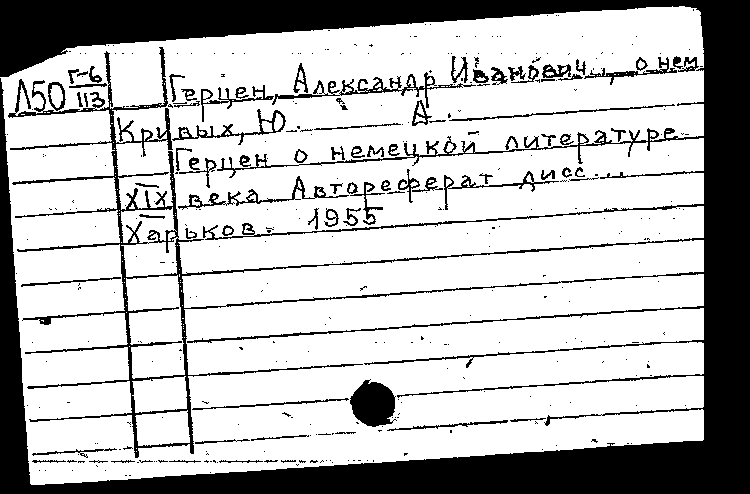 Л50 Г-6
113
Герцен, Александр Иванович.., о нем
Кривых, Ю. А.
Герцен о немецкой литературе
XIX века. Автореферат дисс...
Харьков. 1955